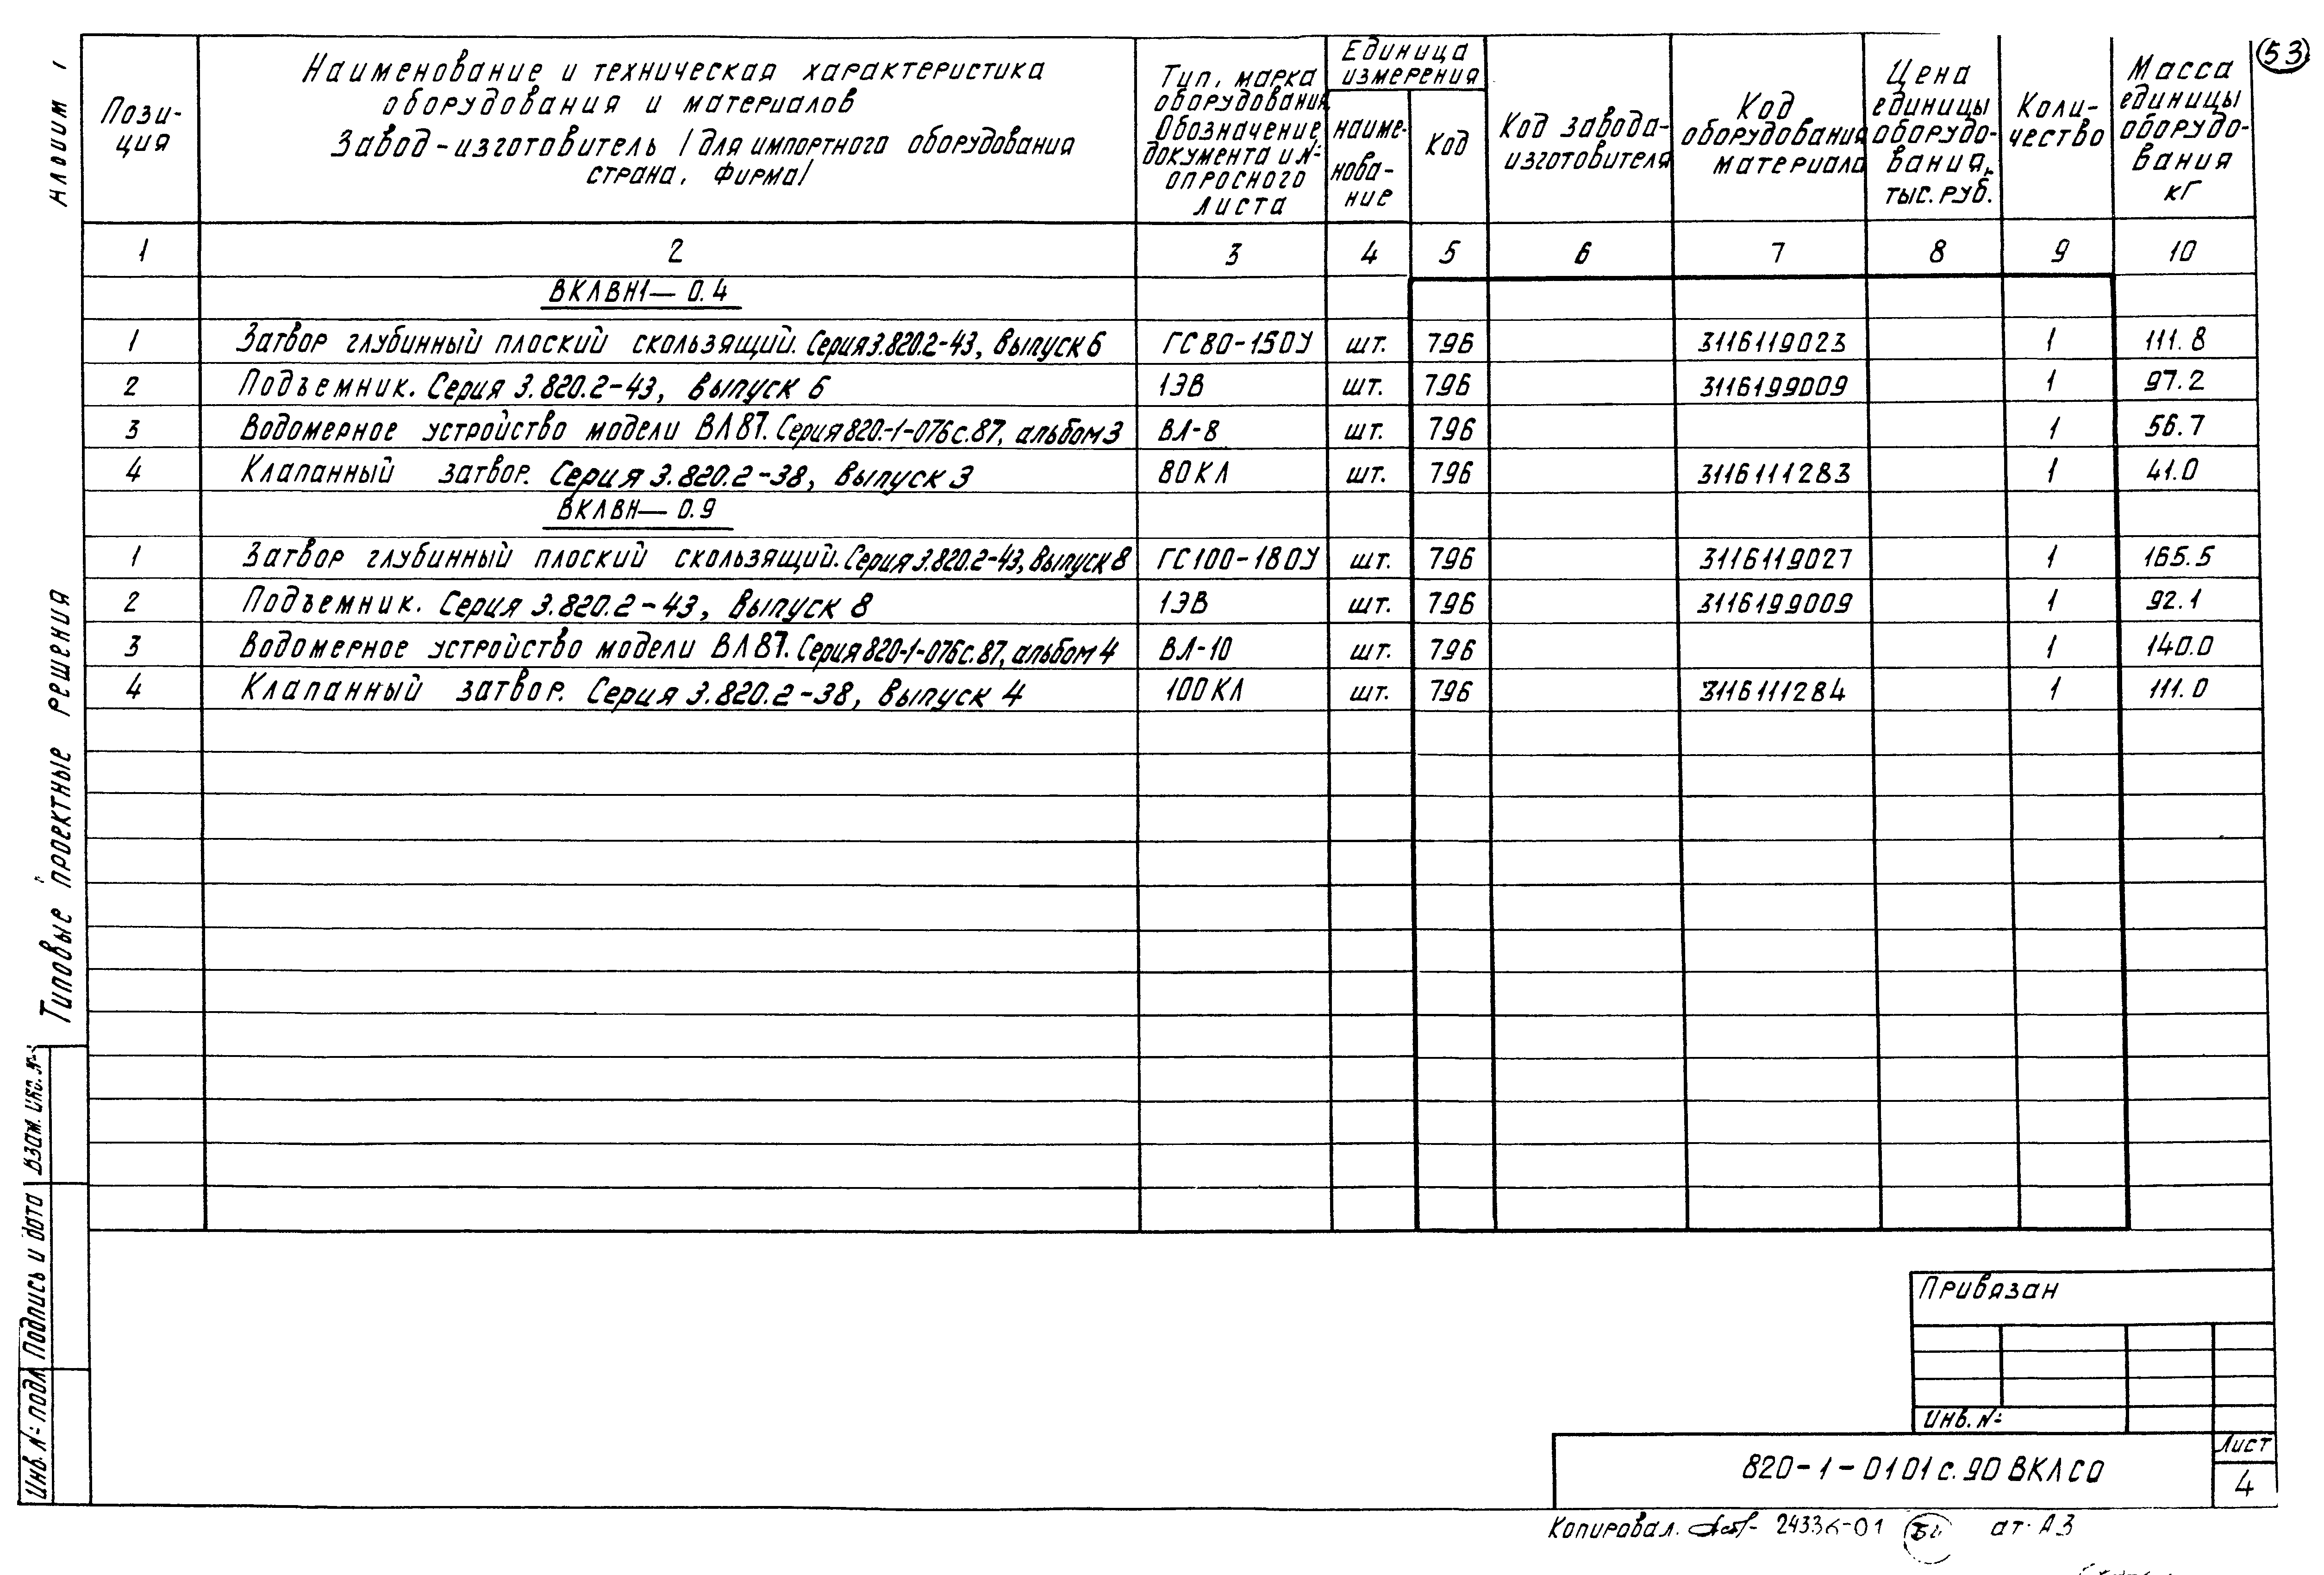 53
Альбом 1
Типовые проектные решения
Пози-
ция
Наименование и техническая характеристика
оборудования и материалов
Завод-изготовитель /для импортного оборудования
страна, фирма/
Тип, марка
оборудования,
Обозначение
документа и №
опросного
листа
Единица
измерения
наиме-
нова-
ние
Код
Код завода-
изготовителя
Код
оборудования
материала
Цена
единицы
оборудо-
вания,
тыс. руб.
Коли-
чество
Масса
единицы
оборудо-
вания
кг
1 2 3 4 5 6 7 8 9 10
ВКЛВН1— 0.4
1 Затвор глубинный плоский скользящий. Серия 3.820.2-43, Выпуск 6 ГС80-150У шт. 796 3116119023 1 111.8
2 Подъемник. Серия 3.820.2-43, Выпуск 6 1ЭВ шт. 796 3116199009 1 97.2
3 Водомерное устройство модели ВЛ87. Серия 820.-1-076с.87, альбом 3 ВЛ-8 шт. 796 1 56.7
4 Клапанный затвор. Серия 3.820.2-38, Выпуск 3 80КЛ шт. 796 3116111283 1 41.0
ВКЛВН— 0.9
1 Затвор глубинный плоский скользящий. Серия 3.820.2-43, Выпуск 8 ГС100-180У шт. 796 3116119027 1 165.5
2 Подъемник. Серия 3.820.2-43, Выпуск 8 1ЭВ шт. 796 3116199009 1 92.1
3 Водомерное устройство модели ВЛ87. Серия 820-1-076с.87, альбом 4 ВЛ-10 шт. 796 1 140.0
4 Клапанный затвор. Серия 3.820.2-38, Выпуск 4 100КЛ шт. 796 3116111284 1 111.0
Взам. инв. №
Подпись и дата
Инв. № подл
Привязан
Инв. №
820-1-0101с.90 ВКЛСО
Лист
4
Копировал. 24336-01 ат А3